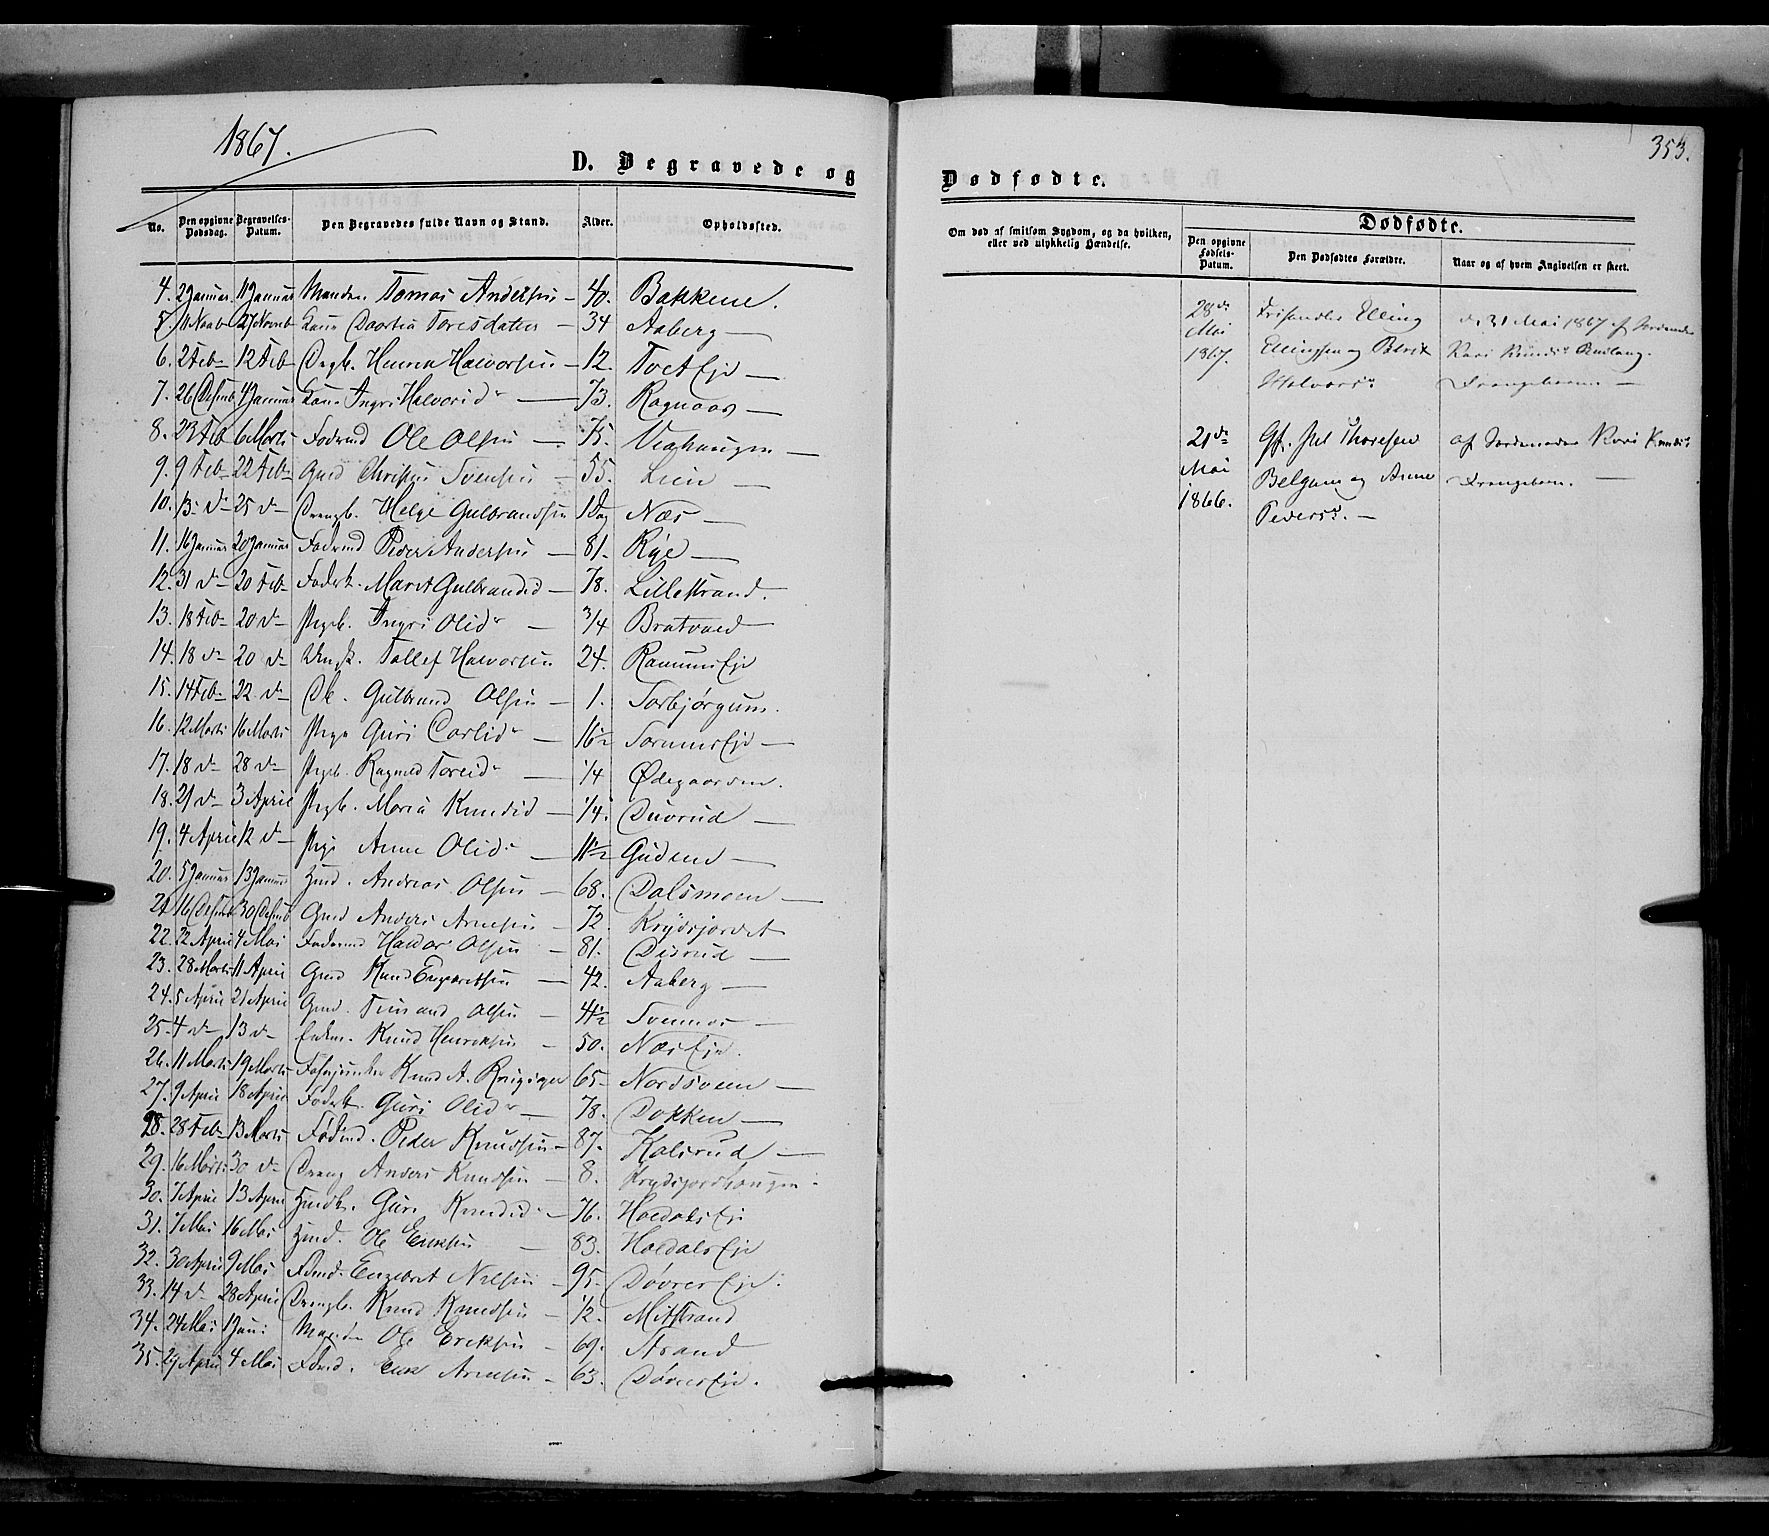 1867.
353.
D. Begravede og Dødfødte.
No. Den opgivne Dødsdag. Begravelses-Datum. Den Begravedes fulde Navn og Stand. Alder. Opholdssted.
Om død af smitsom Sygdom, og da hvilken, eller ved ulykkelig Hændelse.
Dødfødte.
Den opgivne Fødsels-Datum. Den Dødfødtes Forældre. Naar og af hvem Angivelsen er skeet.
4. 2 Januar. 11 Januar Tomas Andersen — 40. Bakkene.
5. 11 Novb 27 Novmb Kone Doortea Toresdatter — 34 Aaberg —
6. 2 Feb 12 Feb Drgb. Halvorsen — 12. Toet Eje —
7. 26 Desmb 4 Januar Kone Ingri Halvorsd — 73. Ragnaas —
8. 23 Feb 6 Marts Fodermd Ole Olsen — 75. Viahaugen —
9. 9 Feb 22 Feb Gmd Svensen — 55. Lien —
10. 13 d 25 d Drengb. Helge Gulbrandsen 1 Dag Næs —
11. 16 Januar 20 Januar Fodermd Peder Andersen — 81. Rye —
12. 31 d 20 Feb Foderk. Marit Gulbrandsd — 78. Lillestrand.
13. 18 Feb 20 d Pigeb. Ingri Olsd — 3/4 Bratvold
14. 18 d 20 d Ungk. Tollef Halvorsen 24. Ramums Eje
15. 14 Feb 22 d Db. Gulbrand Olsen — 1. Torbjørgum.
16. 12 Marts 16 Marts Pige Guri Carlsd — 16 1/2 Eje —
17. 18 d 28 d Pigeb. Ragnild Toresd — 1/4 Ødegaarden.
18. 21 d 3 April Pigeb. Maria Knudsd — 1/4. Duvrud —
19. 4 April 12 d Pige Anne Olsd — 11 1/2 Guden —
20. 5 Januar 13 Januar Andreas Olsen — 68. Dalsmoen —
21. 16 Desmb 30 Desmb Gmd Anders Arnesen — 72. Krydsjordet
22. 22 April 4 Mai Fodermd Haldor Olsen — 81. Disrud —
23. 28 Marts 11 April Gmd Knud Engebretsen — 42. Aaberg —
24. 5 April 21 April Gmd. Olsen — 44 1/2
25. 4 d 13 d Enkm. Knud Henriksen — 50. Næs Eje.
26. 11 Marts 19 Marts Knud A. 65 Nordsveen —
27. 9 April 18 April Foderk. Guri Olsd — 78. Dokken —
28. 28 Feb 13 Marts Fodmd. Peder Knudsen — 87. Kolsrud —
29. 16 Marts 30 d Dreng Anders Knudsen — 8. Krydsjordhaugen
30. 7 April 13 April Guri Knudsd — 76. Hoedals Eje
31. 7 Mai 16 Mai Ole Eriksen — 83. Hoedals Eje
32. 30 April 9 Mai Fdmd. Engebret Nilsen — 95. Døvres Eje.
33. 14 d 28 April Drengb. Knud Knudsen — 1/2. Mitstrand
34. 24 Mai 1 Juni Ole Eriksen — 69. Strand
35. 29 April 4 Mai Fdmd. Erik Arnesen — 63. Døvres Eje.
28de Mai 1867. Elling Ellingsen og Halvorsd
d. 31 Mai 1867 af Jordemoder Kari Knudsd
21de Mai 1866. Gf. Thoresen Belgum og Anne Pedersd. —
af Jordemoder Kari Knudsd —